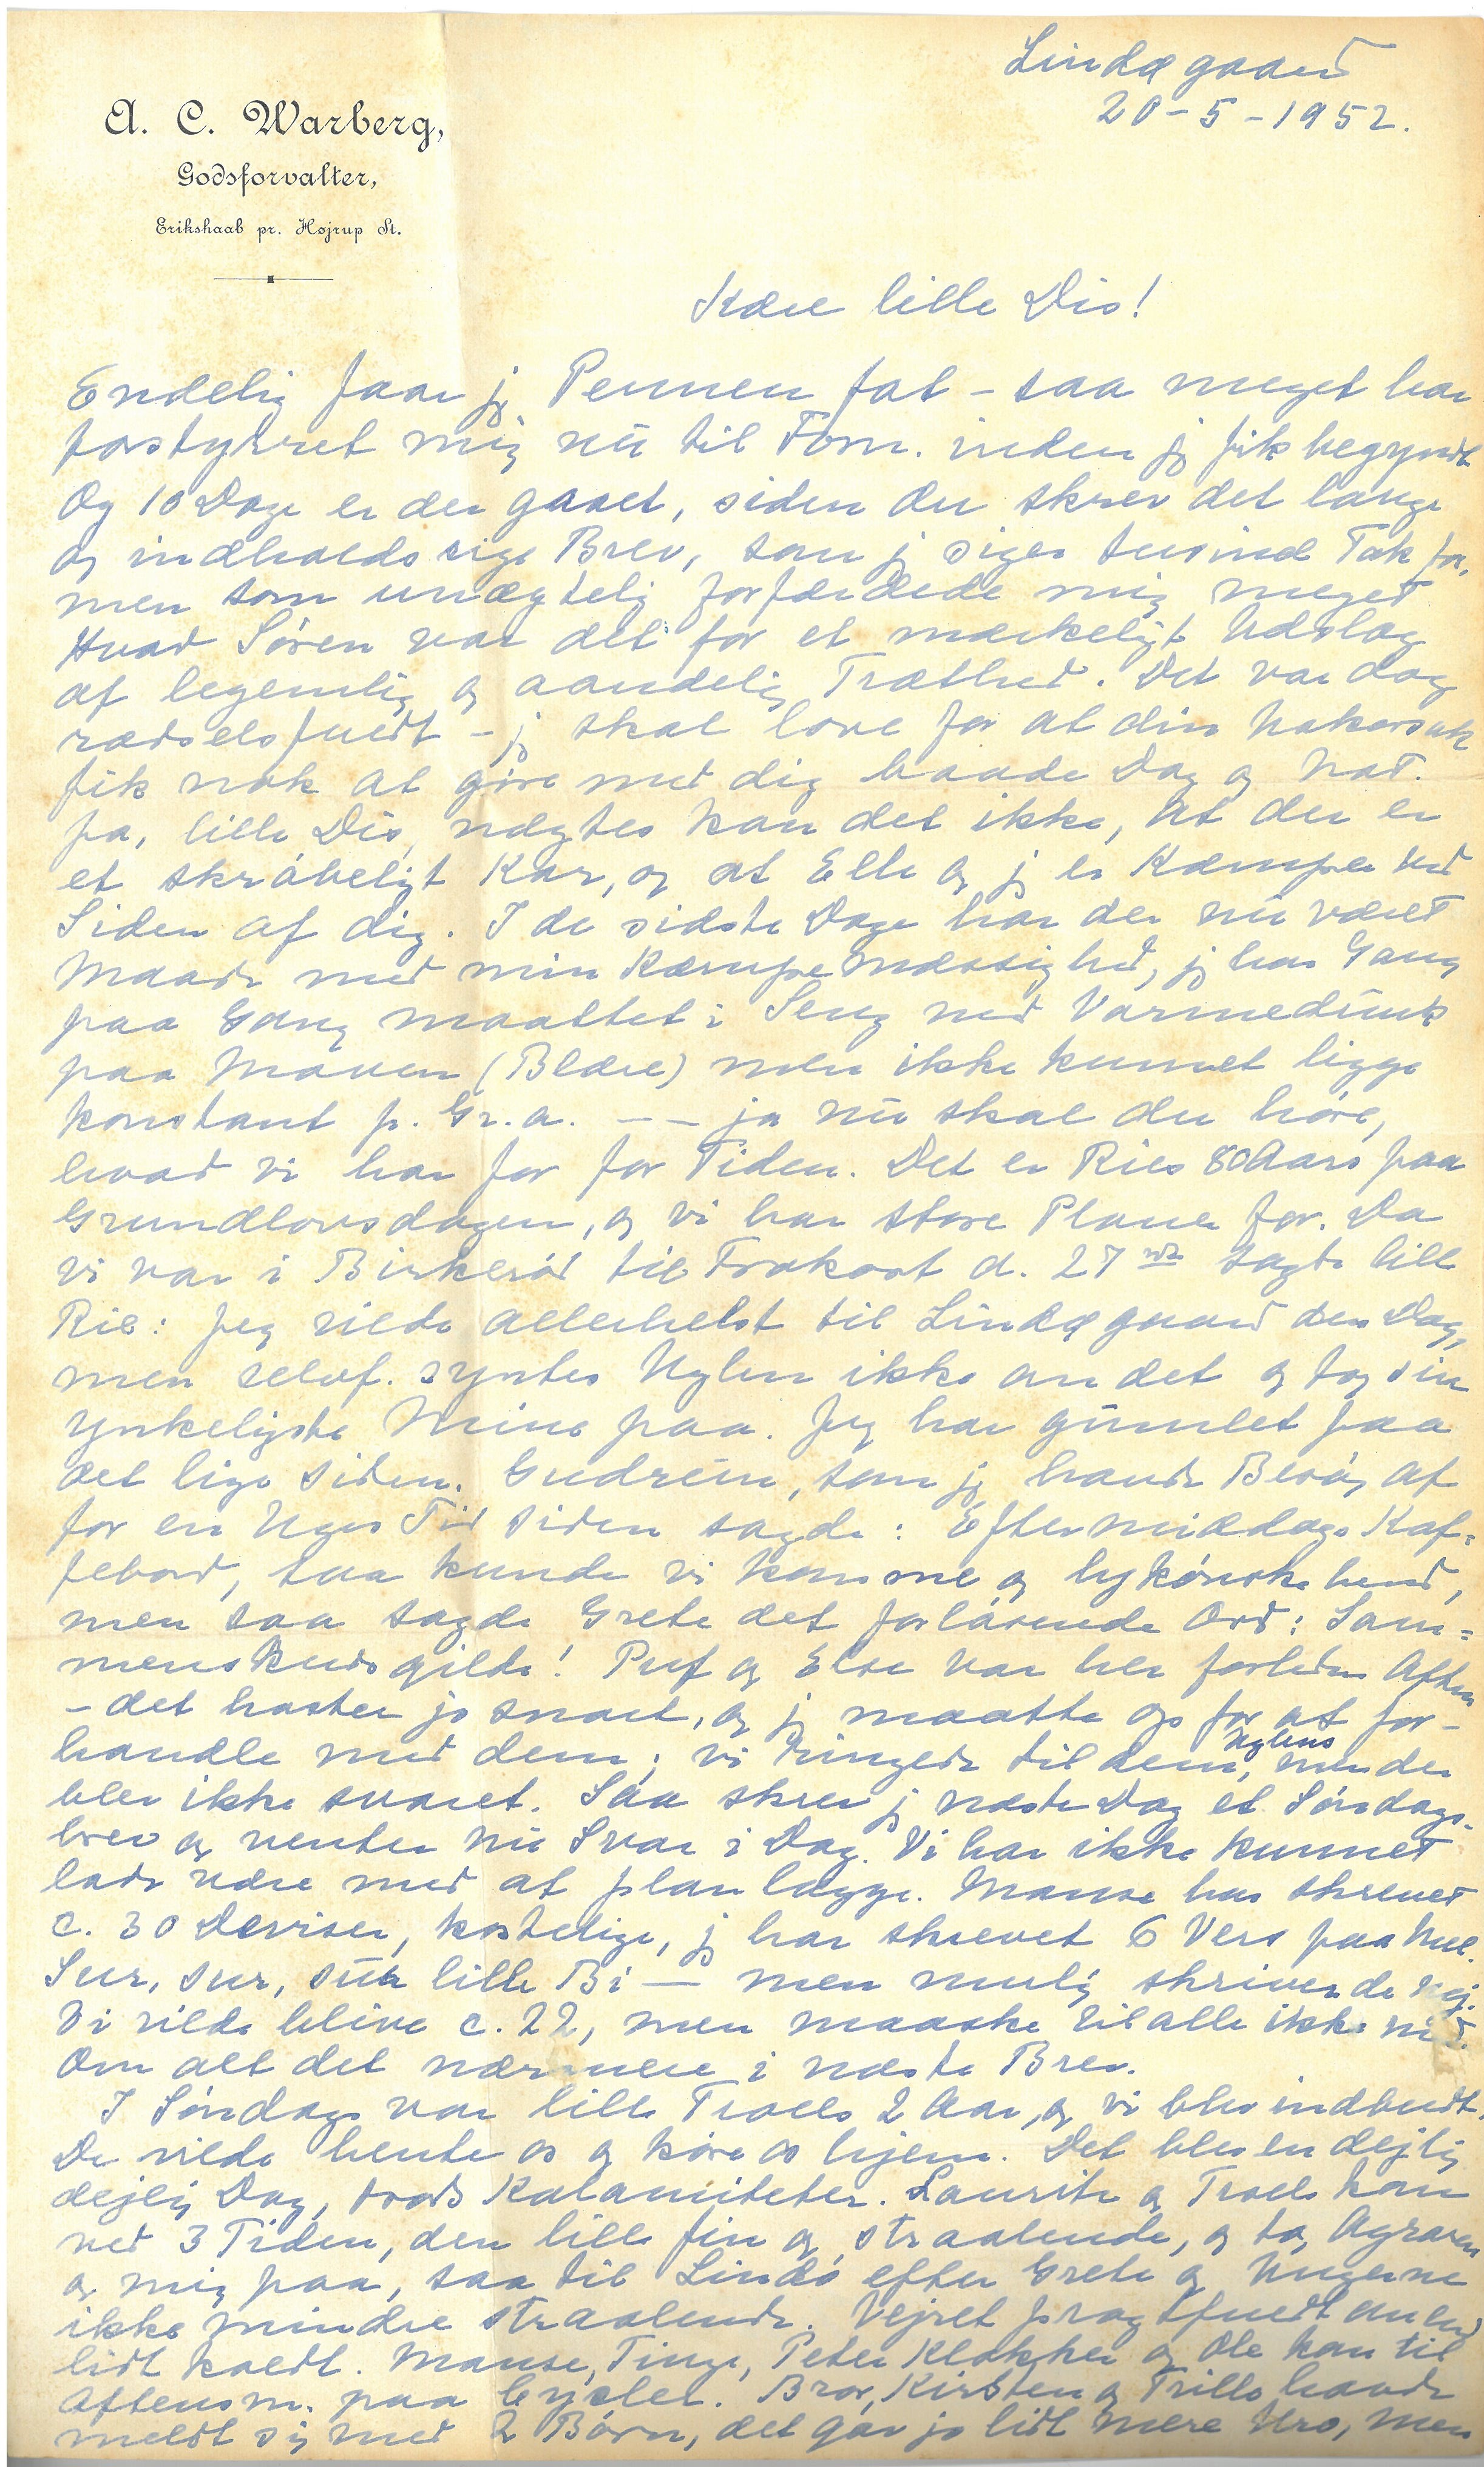 Lindøgaard
20-5-1952.
A. C. Warberg,
Godsforvalter,
Erikshaab pr. Højrup St.
Kære lille Dis!
Endelig faar jg Pennen fat - saa meget har
forstyrret mig nu til Form. inden jg fik begyndt
Og 10 Dage er der gaaet, siden du skrev det lange
og indholdsrige Brev, som jg siger tusind Tak for,
men som unægtelig forfærdede mig meget
Hvad Søren var det for et mærkeligt Udslag
af legemlig og aandelig Træthed. Det var dog
rædselsfuldt - jg skal love for at din
fik nok at gøre med dig baade Dag og Nat.
Ja, lille Dis, nægtes kan det ikke, at du er
et skrøbeligt Kar, og at Elle og jg er Kæmper ved
Siden af dig. I de sidste Dage har der nu været
Maade med min Kæmpemæssighed, jg har Gang
paa Gang maattet i Seng med Varmedunk
paa Maven (Blære) men ikke kunnet ligge
konstant p. Gr. a. - - ja nu skal du høre,
hvad vi har for for Tiden. Det er Ries 80 Aars paa
Grundlovsdagen, og vi har store Planer for. Da
vi var i Birkerød til Frokost d. 27 de sagde lille
Rie: Jeg vilde allerhelst til Lindøgaard den Dag,
men selvf. syntes Uglen ikke om det og tog sin
ynkeligste Mine paa. Jeg har gumlet paa
det lige siden. Gudrun, som jg havde Besøg af
for en Uges Tid siden sagde: Eftermiddags Kaf=
febord, saa kunde vi komme og lykønske hende,
men saa sagde Grete det forløsende Ord: Sam=
menskudsgilde! Puf og Else var her forleden Aften
- det haster jo snart, og jg maatte op for at for-
handle med dem; vi ringede til dem, Uglens men der
blev ikke svaret. Saa skrev jg næste Dag et Søndags-
brev og venter nu Svar i Dag. Vi har ikke kunnet
lade være med at planlægge. Manse har skrevet
c. 30 Deviser, kostelige, jg har skrevet 6 Vers paa Mel.
Sur, sur, sur lille Bi — men mulig skriver de nej.
Vi vilde blive c. 22, men maaske vil alle ikke med.
Om alt det nærmere i næste Brev.
I Søndags var lille Troels 2 Aar, og vi blev indbudt.
De vilde hente os og køre os hjem. Det blev en dejlig
dejlig Dag, trods Kalamiteter. Laurits og Troels kom
ved 3 Tiden, den lille fin og straalende, og tog Agraren
og mig paa, saa til Lindø efter Grete og Ungerne
ikke mindre straalende. Vejret pragtfuldt
lidt koldt. Manse, Tinge, Peter Klokker og Ole kom til
Aftensm. paa Cycler. Bror, Kirsten og Trille havde
meldt sig med 2 Børn, det gav jo lidt mere Uro, men